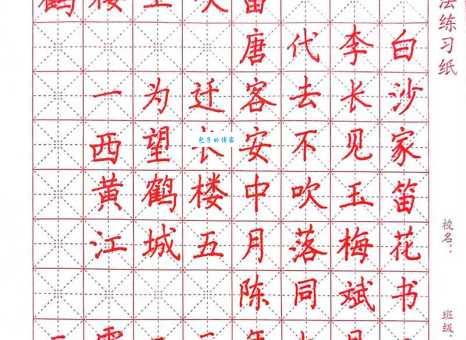 鹤楼上吹笛
唐代李白
一为迁客去长沙
西望长安不见家
黄鹤楼中吹玉笛
江城五月落梅花
陈同斌书
法练习纸
校名：
班级：